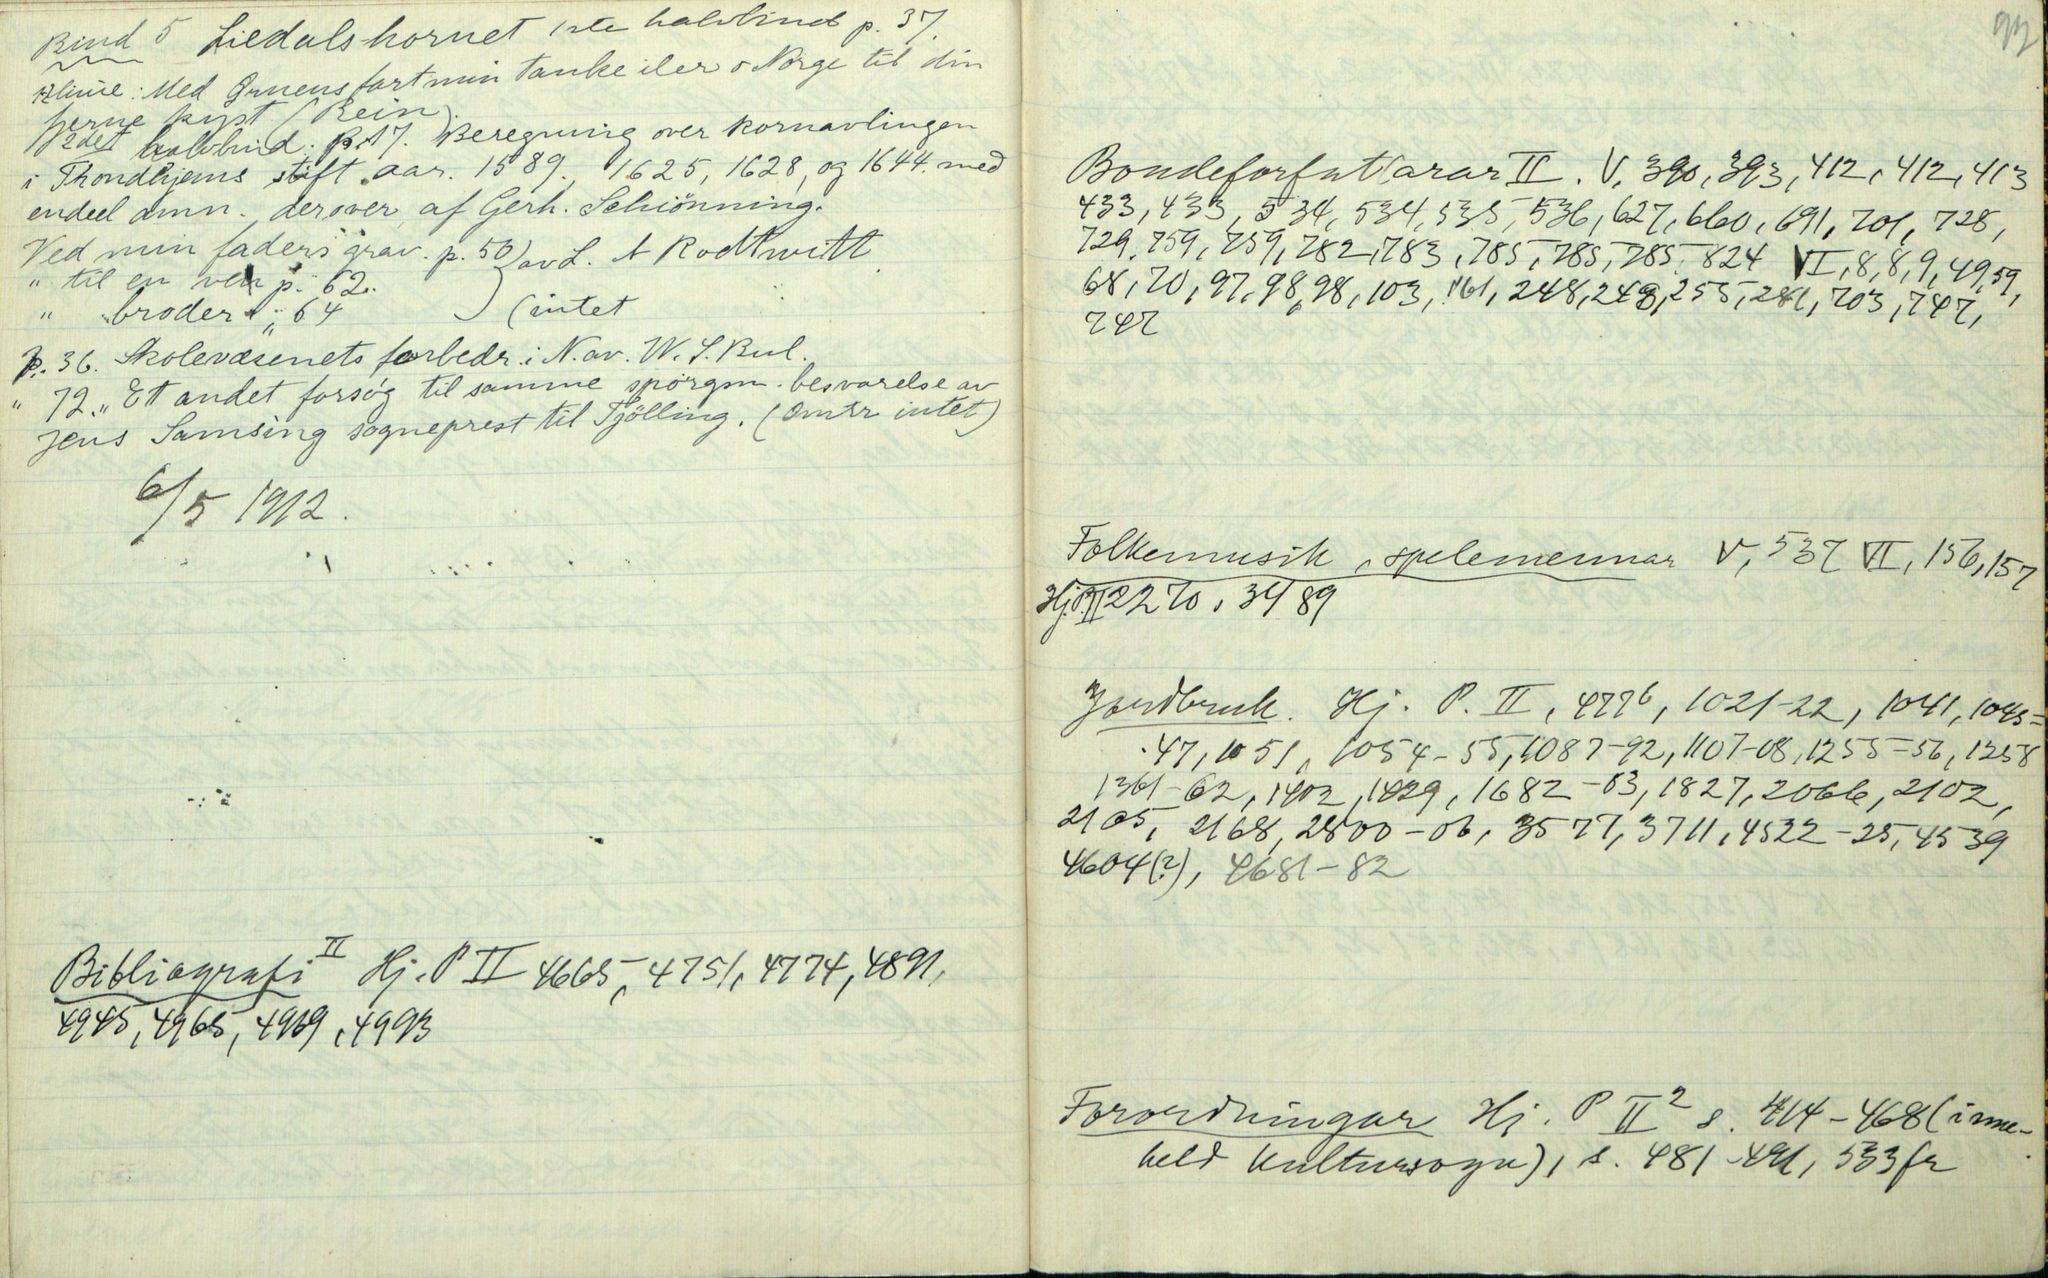 Bind 5 Liedalshornet 1ste halvbind p. 37.
Med Ørnens fart min tanke iler o Norge til din
fjerne kyst (Rein).
2det halvbind. p. 17. Beregning over kornavlingen
i Trondhjems stift aar. 1589., 1625, 1628, og 1644. med
endeel anm. derover af Gerh. Schiönning.
Ved min faders grav. p. 50) av L. A Rodtwitt
" til en ven p. 62.
" broder " 64 (intet
p. 36. Skolevæsenets forbedr. i N. av. W. S. Bul.
" 72. " Et andet forsøg til samme spörgsm. besvarelse av
Jens Samsing sogneprest til Tjölling. (Omtr intet)
6/5 1912.
Bibliografi II Hj. P II 4665, 4751, 4774, 4891,
4945, 4965, 4969, 4993
Bondeforfattarar II. V, 390, 393, 412, 412, 413
433, 433, 534, 534, 535, 536, 627, 660, 691, 701, 728,
729, 759, 759, 782, 783, 785, 785, 785, 824 VI, 8, 8, 9, 49, 59,
68, 70, 97, 98, 98, 103, 161, 248, 248, 255, 281, 703, 747,
747
Folkemusik, spelemennar V, 537 VI, 156, 157
Hj. P. II 2270, 3489
Jordbruk. Hj. P. II, 4776, 1021-22, 1041, 1045=
47, 1051, 1054-55, 1087-92, 1107-08, 1255-56, 1258
1361-62, 1402, 1429, 1682-83, 1827, 2066, 2102,
2105, 2168, 2800-06, 3577, 3711, 4522-25, 4539
4604(?), 4681-82
Forordningar Hj. P II 2 s. 414-468 (inne-
held kultursoga), s. 481-491, 533 fr